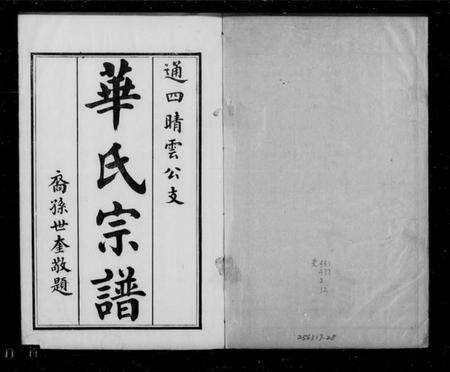 通四晴雲公支
華氏宗譜
裔孫世奎敬題
256317-28